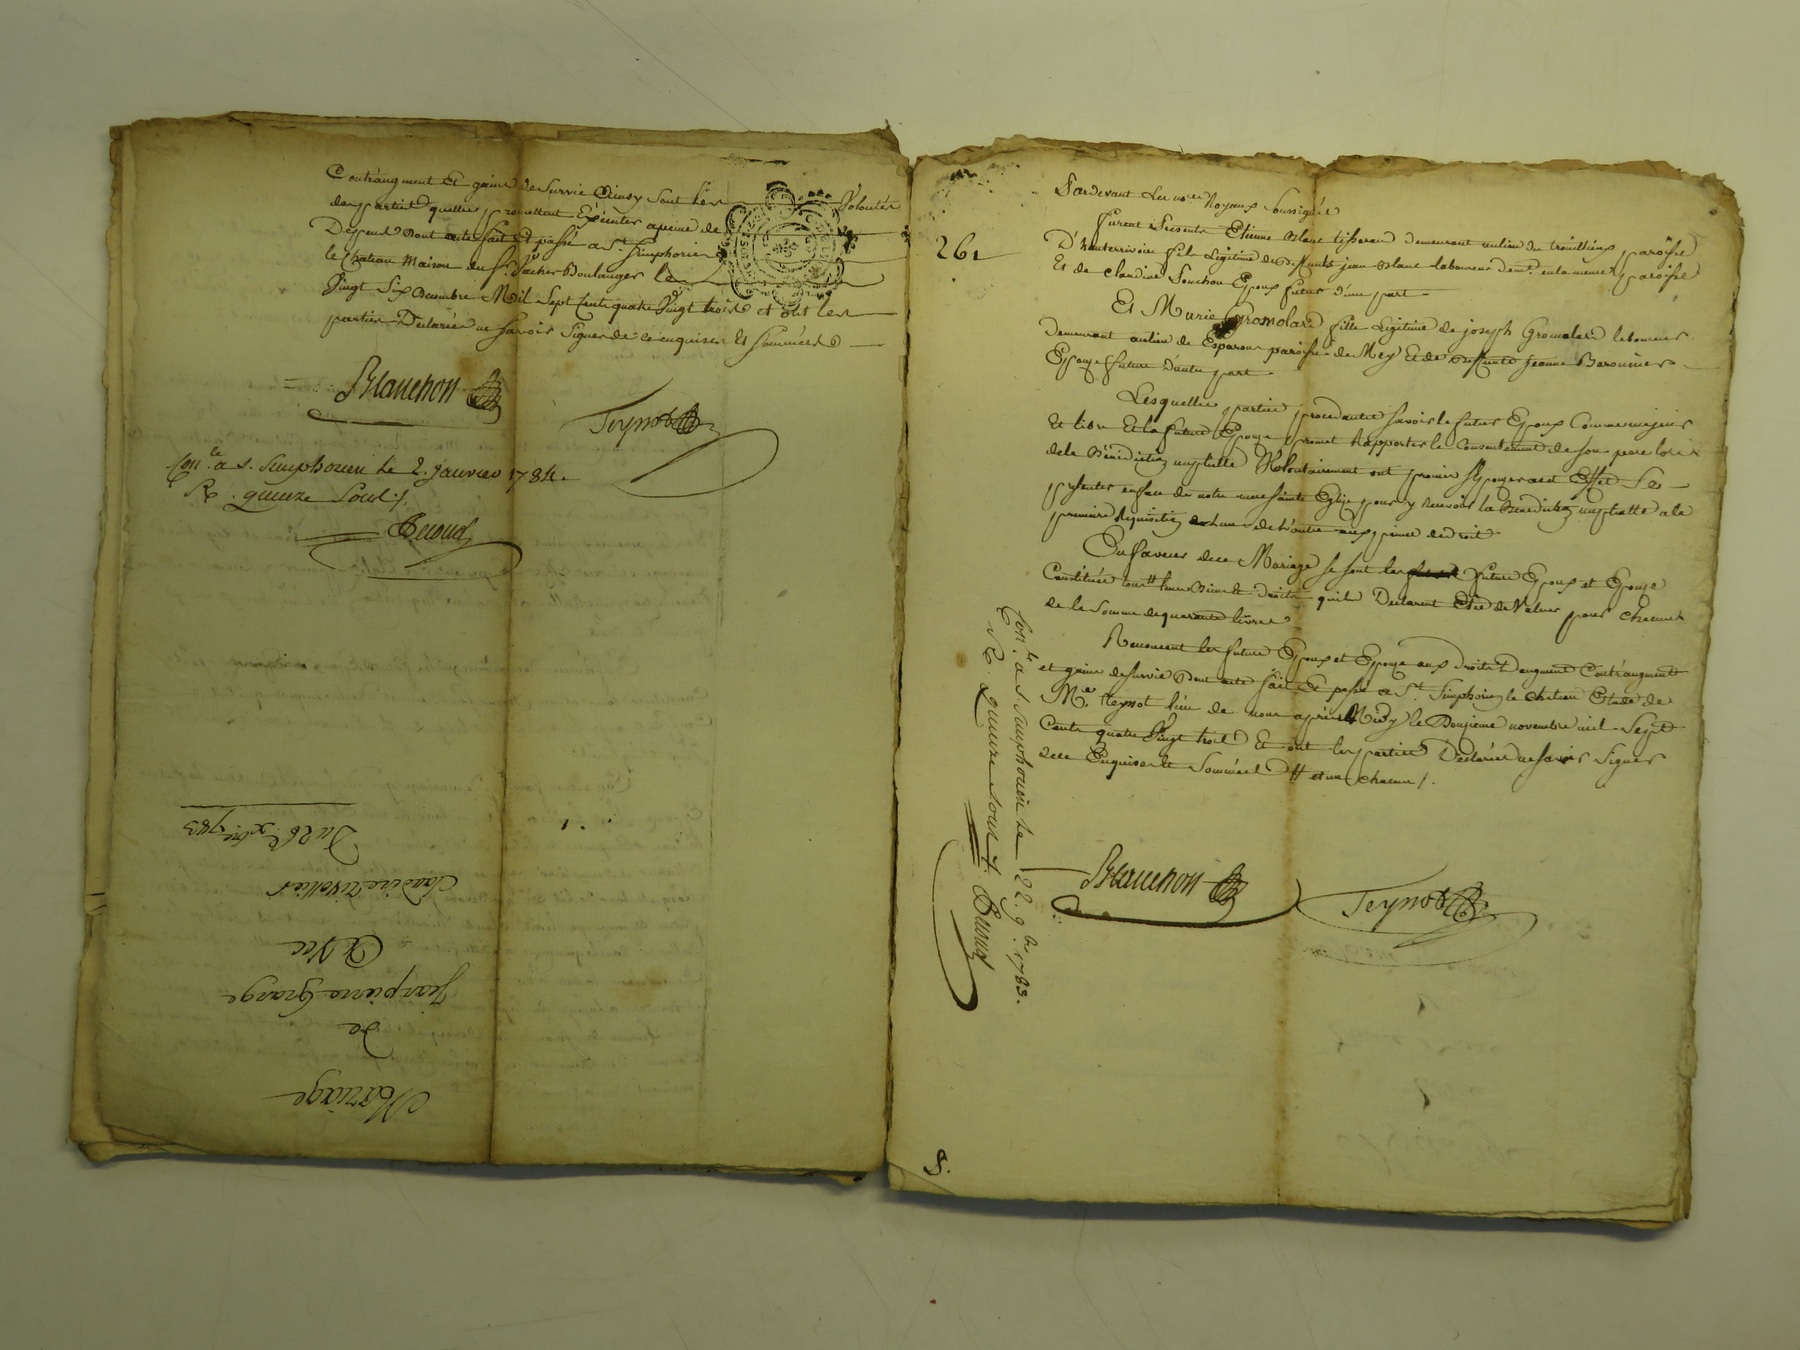 Contraugment Et gains de Survie Ainsy Sont les Volontés
des partie quelles promettent Exécuter a peine de
Depend Dont acte fait Et passé a St. Simphorien
le chateau Maison du Sr. Vacher Boulanger le
Vingt Six Decembre Mil Sept Cents quatre Vingt trois et ont les
parties Declarées ne Savoir Signer de ce enquises Et Sommées
Blanchon
Teynot
Con.le a S. Simphorien le 2. janvier 1784.
R. quinze Souls /.
Mariage
de
Jean pierre Grange
Avec
Claudine
Du 26. xbre 1783
261
Pardevant Les nores Royaux Soussignés
furent Presents Etienne Blanc tisserand demeurant au lieu de paroisse
D'hauterrivoire fils Legitime de Deffunts jean Blanc laboureur demt. en la meme paroisse
Et de Claudine Souchon Epoux futur d'une part
Et Marie Gromolard fille Legitime de joseph Gromolard laboureur
demeurant au lieu de Esparon paroisse de Meys Et de Deffunte jeanne
Epouse future D'autre part
Lesquelles parties procedantes savoir le futur Epoux Comme majeur
Et libre Et la future Epouse promet Rapporter le Consentement de Son pere lors
de la Bénédiction nuptialle Volontairement ont promis S'Epouser a cet Effet Se
presenter en face de notre mere Sainte Eglise pour y recevoir la Benediction nuptialle a la
premiere Requisition de L'autre aux peines de droit
En faveur de ce Mariage se sont les futurs Epoux et Epouse
Constitués tous leurs Biens & droits quils Declarent Etre de Valeur pour chacun
de la Somme de quarante livres
Renoncent les futurs Epoux et Epouse aux Droits D'augment Contraugment
et gains de Survie Dont acte fait Et passé a St. Simphorien le chateau Etude de
Me. Teynot l'un de nous après Midy le Douzieme novembre mil Sept
Cents quatre Vingt trois Et ont les parties Declarées ne Savoir Signer
de ce Enquises Et Sommées
Blanchon
Teynot
Con.le a S. Simphorien le 22. 9bre 1783.
R. quinze Souls /.
8.